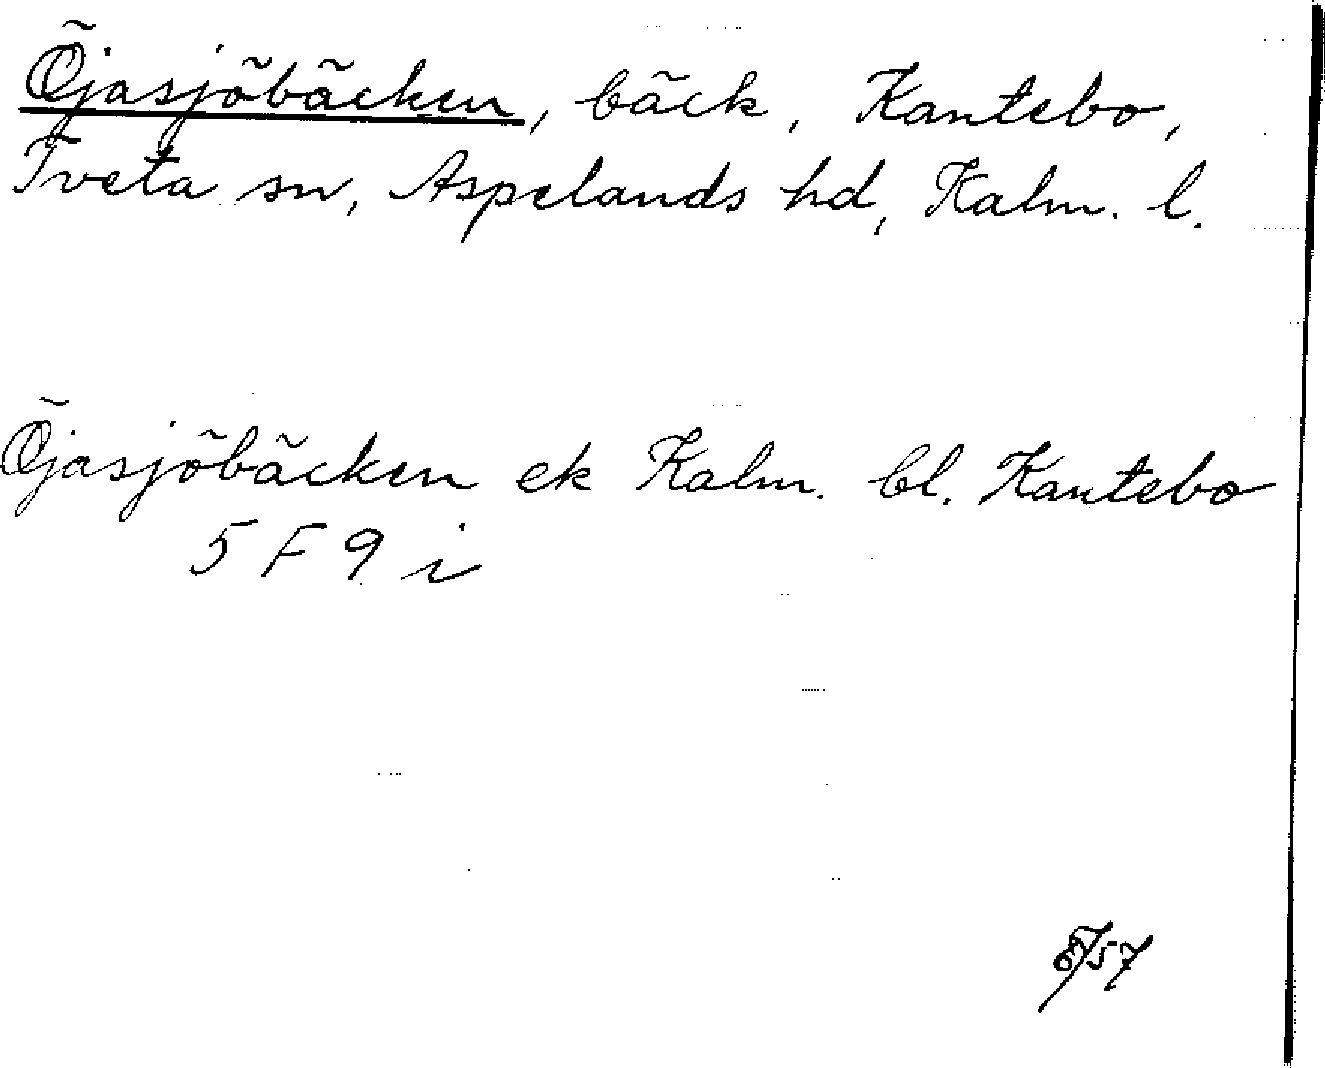 Öjasjöbäcken, bäck, Kantebo,
Tveta sn, Aspelands hd, Kalm. l.
Öjasjöbäcken ek Kalm. bl. Kantebo
5 F 9 i